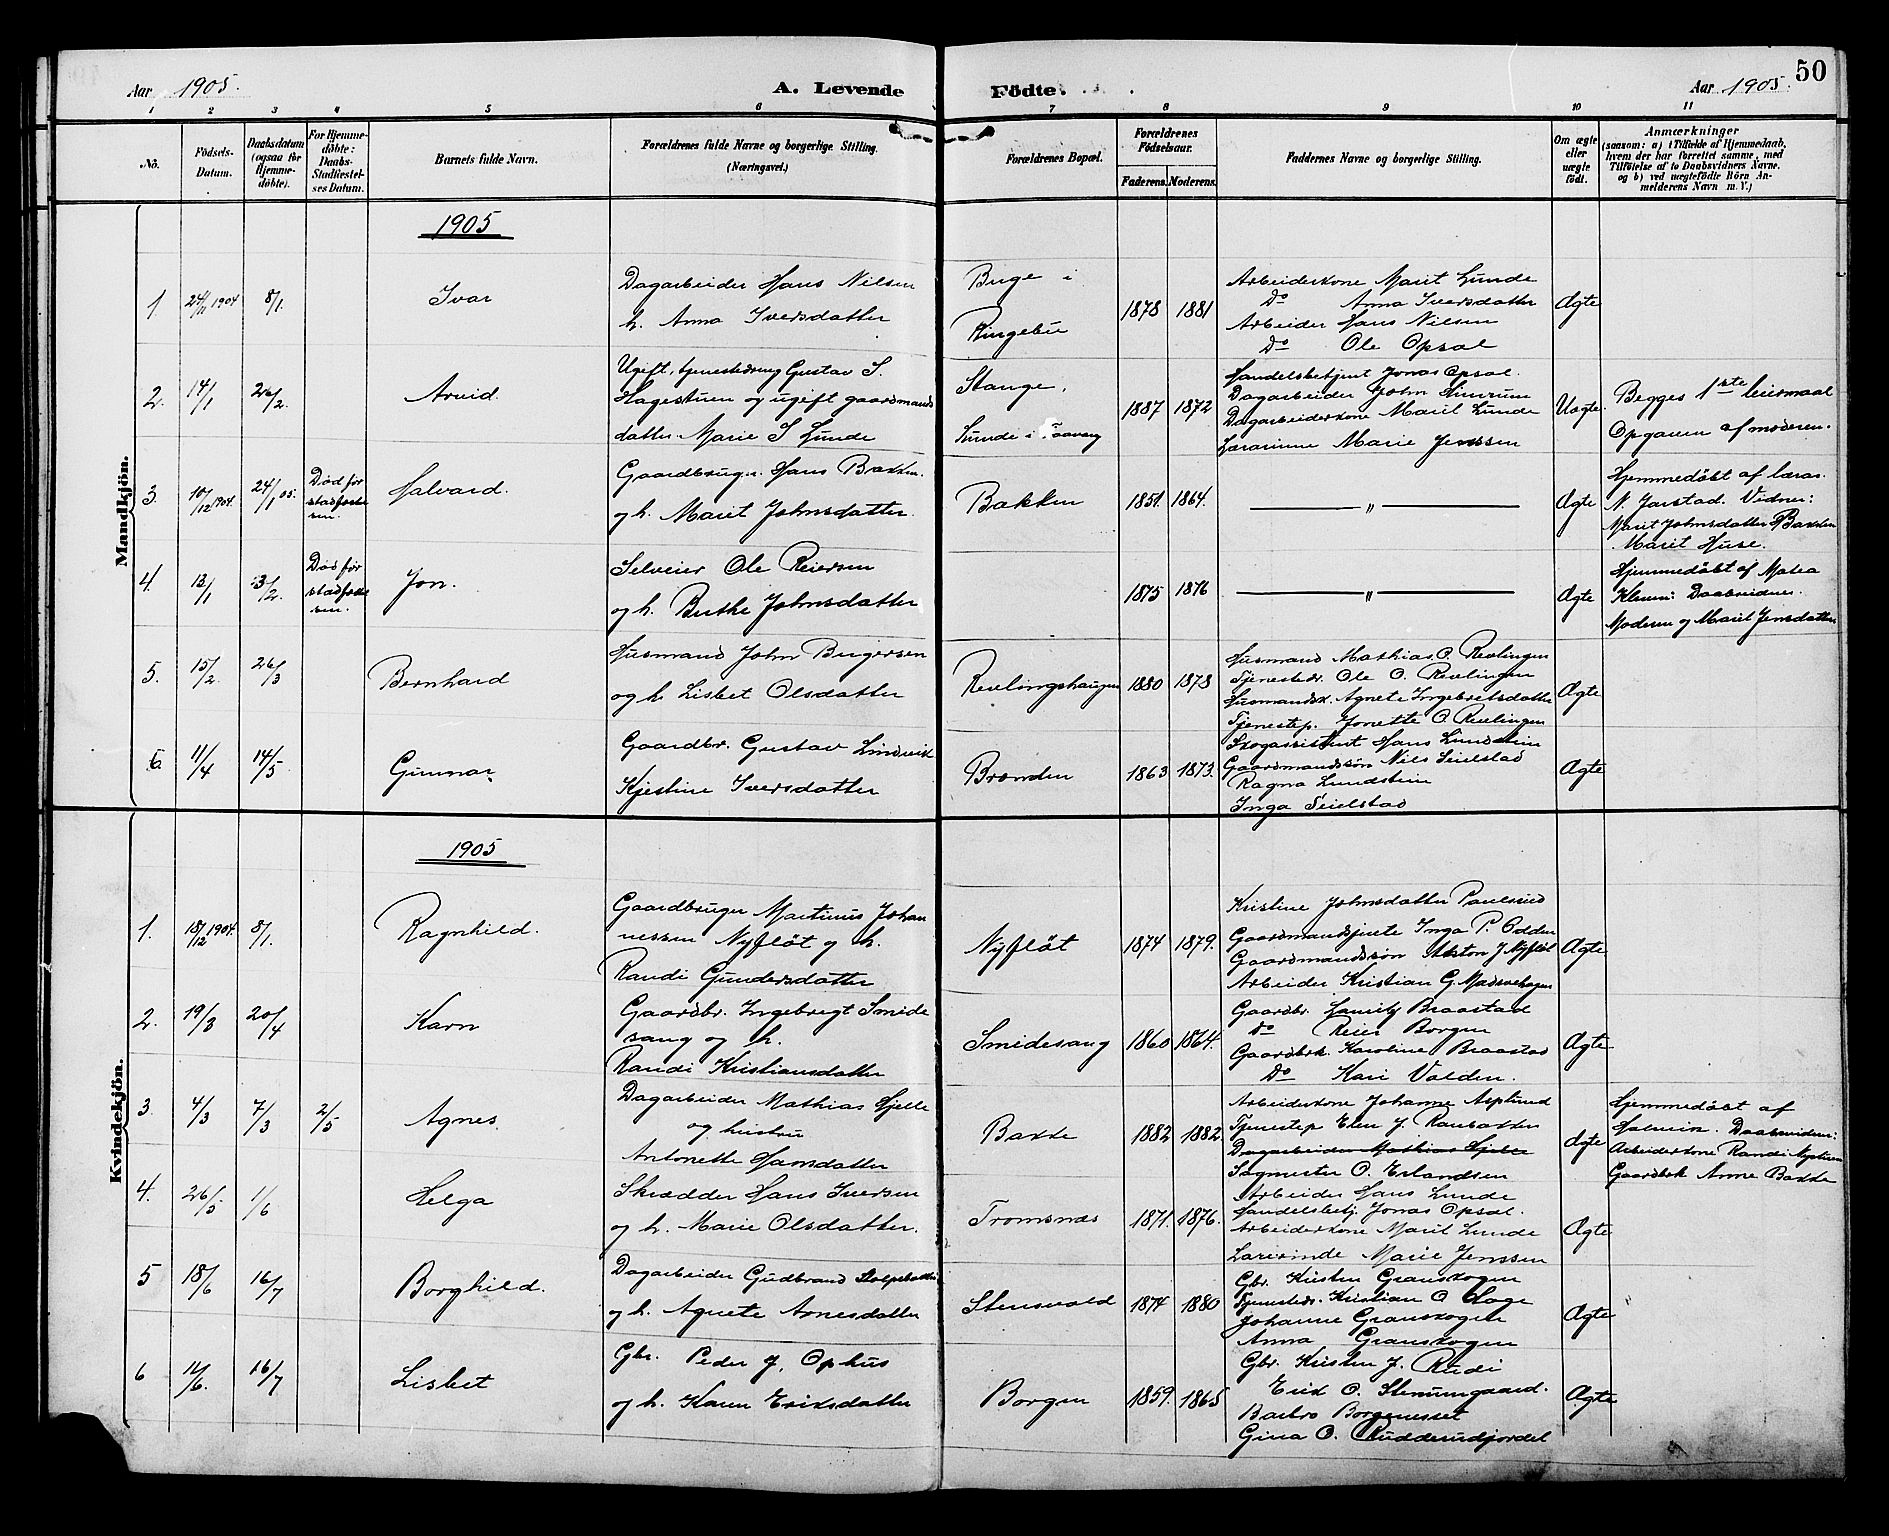 50
Aar 1905.
A. Levende
Födte.
Aar 1905.
1 2 3 4 5 6 7 8 9 10 11
No.
Födsels-
Datum.
Daabsdatum
(ogsaa for
Hjemme-
döbte).
For Hjemme-
döbte:
Daabs-
Stadfæstel-
ses Datum.
Barnets fulde Navn.
Forældrenes fulde Navne og borgerlige Stilling.
(Næringsvei.)
Forældrenes Bopæl.
Forældrenes
Födselsaar.
Faderens.
Moderens.
Faddernes Navne og borgerlige Stilling.
Om ægte
eller
uægte
født.
Anmærkninger
(saasom: a) i Tilfælde af Hjemmedaab,
hvem der har forrettet samme, med
Tilföielse af to Daabsvidners Navne,
og b) ved uægtefödte Börn An-
melderens Navn m. V.)
Mandkjön.
1905
1 24/11 1904 8/1. Ivar
Dagarbeider Hans Nilsen
h. Anna Iversdatter
Buge i
Ringebu
1878 1881
Arbeiderkone Marit Lunde
Do Anna Iversdatter
Arbeider Hans Nilsen
Do Ole Opsal
Ægte
2. 14/1 26/2. Arvid.
Ugift, tjenestedreng Gustav S.
Hagestuen og ugift gaardmands
datter Marie S Lunde
Stange,
Lunde i Faavang
1887 1872
Handelsbetjent Jonas Opsal.
Dagarbeider John
Dagarbeiderkone Marit Lunde
Lærarinne Marie Jenssen
Uægte.
Begges 1ste leiermaal
Opgaven af moderen.
3. 10/12 1904. 24/1 05.
Død før
stadfæstel
sen.
Halvard.
Gaardbruger Hans Bakken
og h. Marit Johnsdatter.
Bakken
1851. 1864.
"
Ægte
Hjemmedøbt af lærer
N. Jarstad. Vidner:
Marit Johnsdatter Bakken
Marit Huse.
4. 13/1 3/2.
Død før
stadfæstel
sen.
Jon.
Selveier Ole Reiersen
og h. Berthe Johnsdatter
1875 1876
"
Ægte
Hjemmedøbt af Matea
Daabsvidner.
Moderen og Marit Jensdatter
5. 15/2. 26/3 Bernhard
Husmand John Birgersen
og h. Lisbet Olsdatter
Revlingshaugen
1880 1878
Husmand Mathias O. Revlingen
Tjenestedr. Ole O. Revlingen
Husmandsk. Agnete Ingebretsdatter
Tjenestep. Jonette O. Revlingen
Ægte
6. 11/4 14/5. Gunnar
Gaardbr. Gustav Lindvik
Kjestine Iversdatter
Brænden
1863 1873.
Skogassistent Hans Lundstein
Gaardmandssøn Nils Seielstad
Ragna Lundstein
Inga Seielstad
Ægte
Kvindekjön.
1905
1. 18/12 1904. 8/1. Ragnhild.
Gaardbruger Martinus Johan
nessen Nyfløt og h.
Randi Gundersdatter
Nyfløt
1874 1879.
Kristine Johnsdatter Paulsrud
Gaardmandspiete Inga P. Odden
Gaardmandssøn Anton J Nyfløt
Arbeider Kristian G. Madsvehagen
Ægte
2. 19/3 20/4 Karn
Gaardbr. Ingebrigt Smide
sang og h.
Randi Kristiansdatter
Smidesang
1860 1864.
Gaardbr. Lauritz Braastad
do Reier Borgen
Gaardbrk. Karoline Braastad
Do Kari Volden.
Ægte
3. 4/3 7/3 2/5 Agnes.
Dagarbeider Mathias Hjelle
og hustru
Antonette Hansdatter
Bakke
1882 1882.
Arbeiderkone Johanne Asplund
Tjenestep Elen J. Ranbakken
Dagarbeider Mathias Hjelle
Sagmester O. Erlandsen
Ægte
Hjemmedøbt af
Daabsvidner:
Arbeiderkone Randi
Gaardbrk Anne Bakke
4. 26/5 1/6 Helga
Skrædder Hans Iversen
og h. Marie Olsdatter.
Tromsnæs
1871. 1876.
Arbeider Hans Lunde
Handelsbetj. Jonas Opsal.
Arbeiderkone Marit Lunde
Marie Jenssen
Ægte
5 18/6 16/7 Borghild.
Dagarbeider Gudbrand Stolpebakke
og h. Agnete Arnesdatter
Stensvold
1874 1880
Gbr. Kristen Granskogen
Tjenestedr. Kristian O Hage
Johanne Granskogen
Anna Granskogen
Ægte
6 11/6. 16/7 Lisbet
Gbr. Peder J. Ophus
og h. Karen Eriksdatter
Borgen
1859. 1865
Gbr. Kristen J. Rudi
Erik O. Stenumgaard.
Barbro Borgenesset
Gina O. Rudderudjordet
Ægte